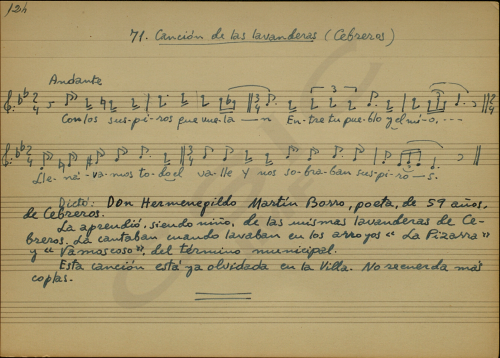 124
71. Canción de las lavanderas (Cebreros)
Andante
Con los sus-pi-ros que vue-la-n En-tre tu pue-blo y el mí-o, ---
Lle-ná-va-mos to-do el va-lle Y nos so-bra-ban sus-pi-ro-s.
Dictó: Don Hermenegildo Martín Borro, poeta, de 59 años,
de Cebreros.
La aprendió, siendo niño, de las mismas lavanderas de Ce-
breros. La cantaban cuando lavaban en los arroyos "La Pizarra"
y "Vamascoso", del término municipal.
Esta canción está ya olvidada en la Villa. No recuerda más
coplas.